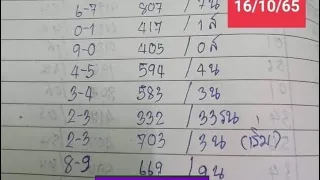 16/10/65
6-7 807 / 7น
0-1 417 / 1ส
9-0 405 / 0ส
4-5 594 / 4น
3-4 583 / 3น
2-3 332 / 33รน
2-3 703 / 3น (เริ่ม)
8-9 669 / 9น